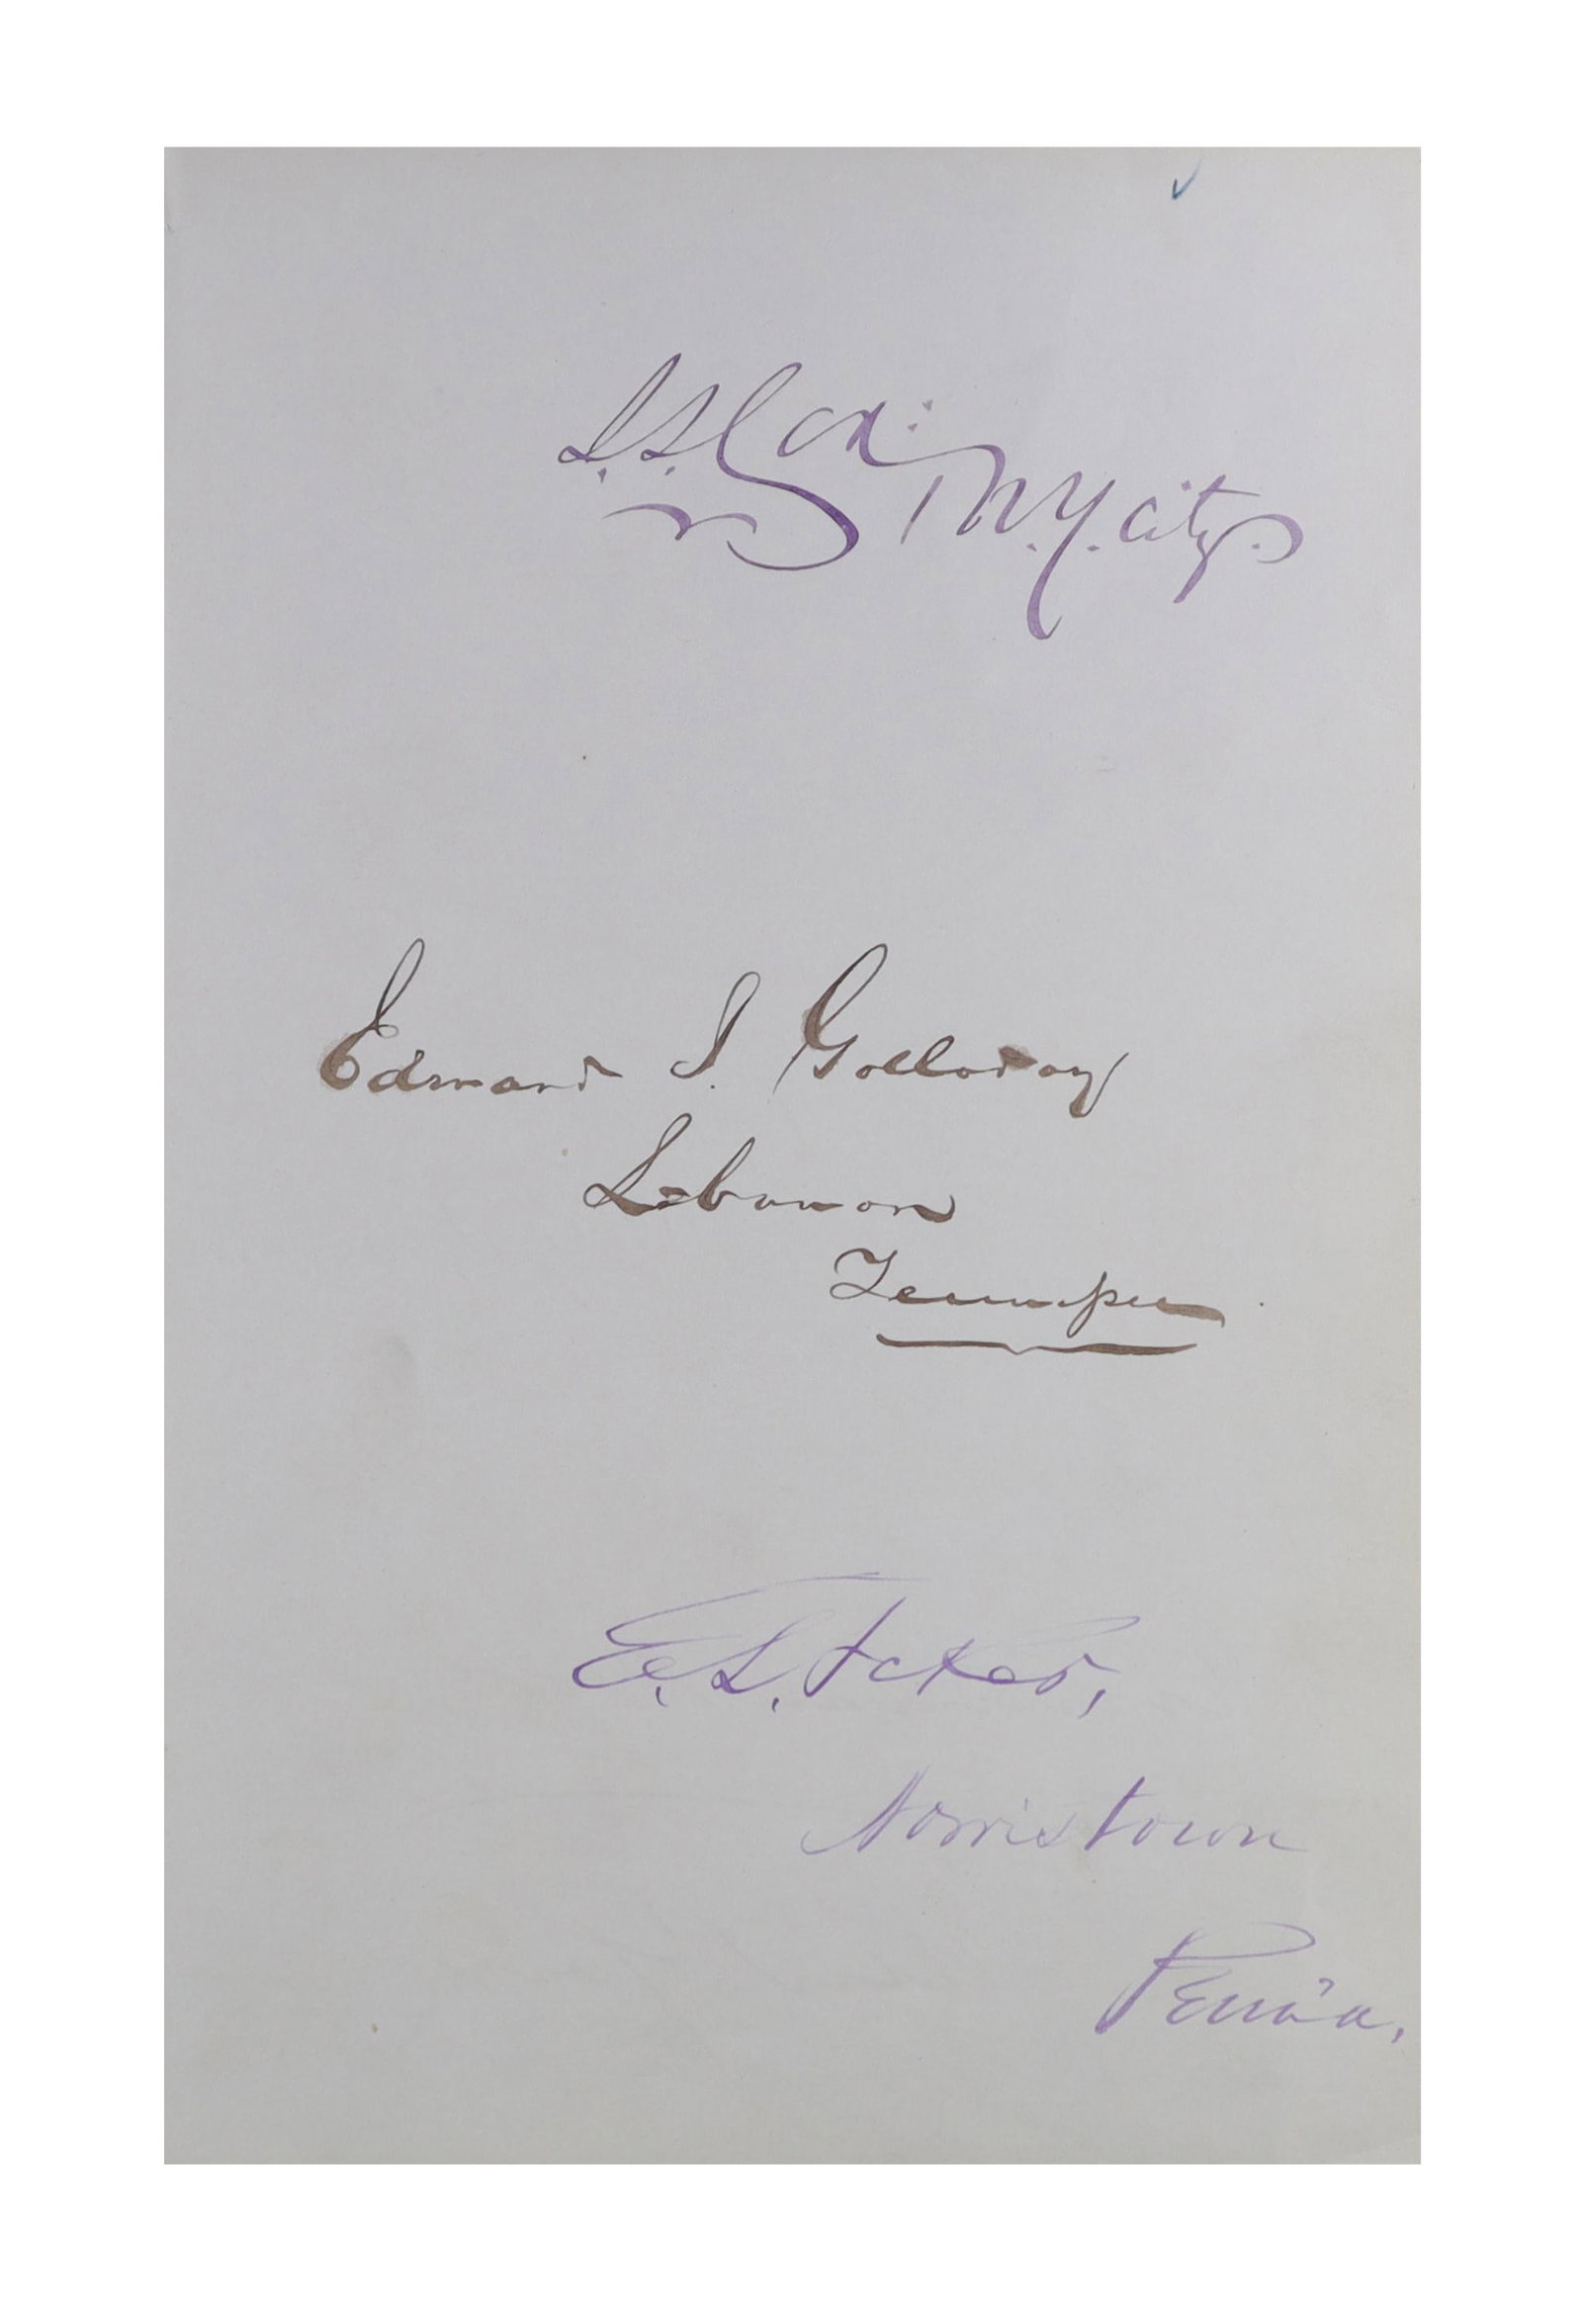 S. S. Cox:
N. Y. City.
Edward I. Golladay
Lebanon
Tennessee
E. L. Acker,
Norristown
Penn'a.